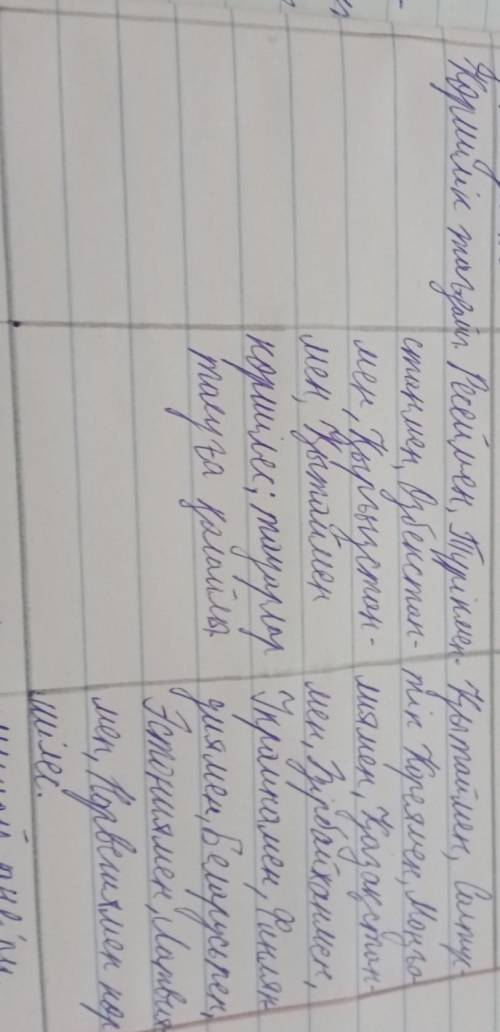 Көршілік
Ресеймен, Түрікмен-
станмен, Өзбекстан-
мен, Қырғызстан-
мен, Қытаймен
көршілес; тауарлар
тасуға қолайлы
Қытаймен, Солтү-
тік Кореямен, Монғо
лиямен, Қазақстан-
мен, Әзірбайжанмен,
Украинамен, Финлян
диямен, Белорусьпен,
Эстониямен, Латвия
мен, Норвегиямен көр
шілес.